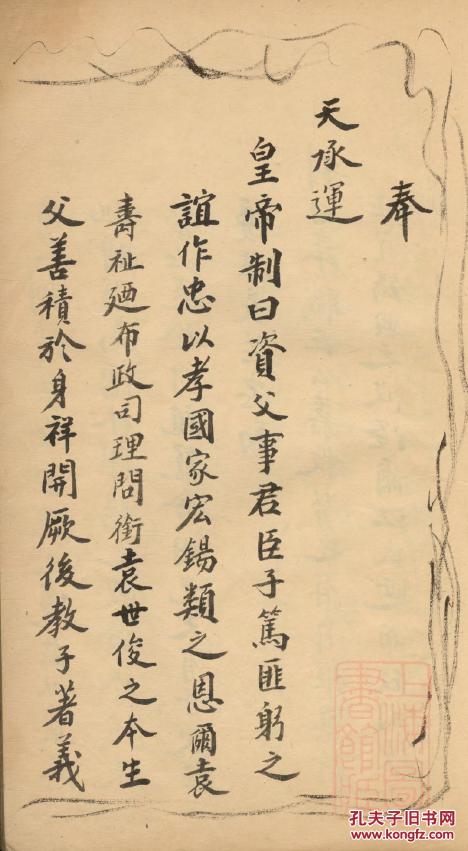 奉
天承運
皇帝制曰資父事君臣子篤匪躬之
誼作忠以孝國家宏錫類之恩爾袁
壽祉廼布政司理問銜袁世俊之本生
父善積於身祥開厥後教子著義
孔夫子旧书网
www.kongfz.com